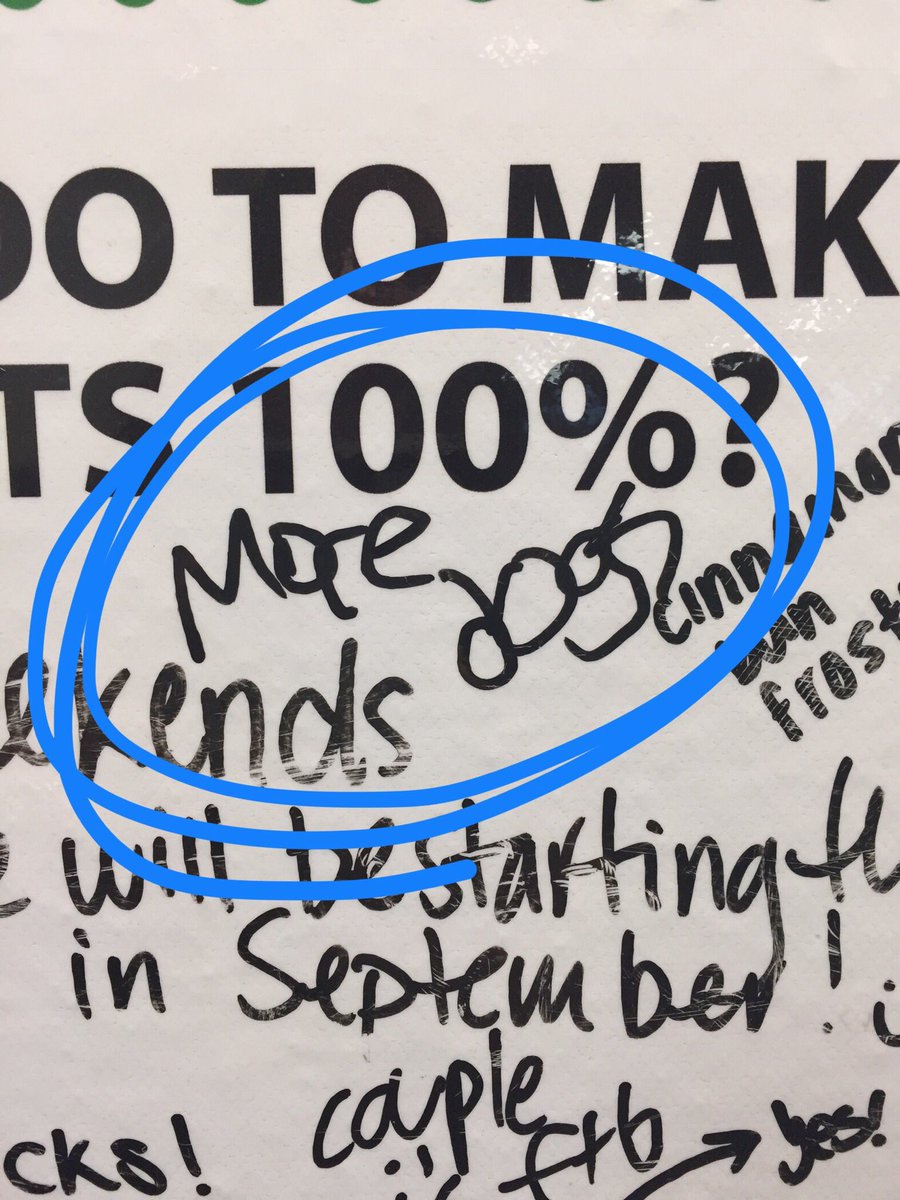 DO TO MAK
TS 100%?
More
cinnamon
bun
frost
ekends
e will be starting th
in September!
couple
cks!
f+b → yes!